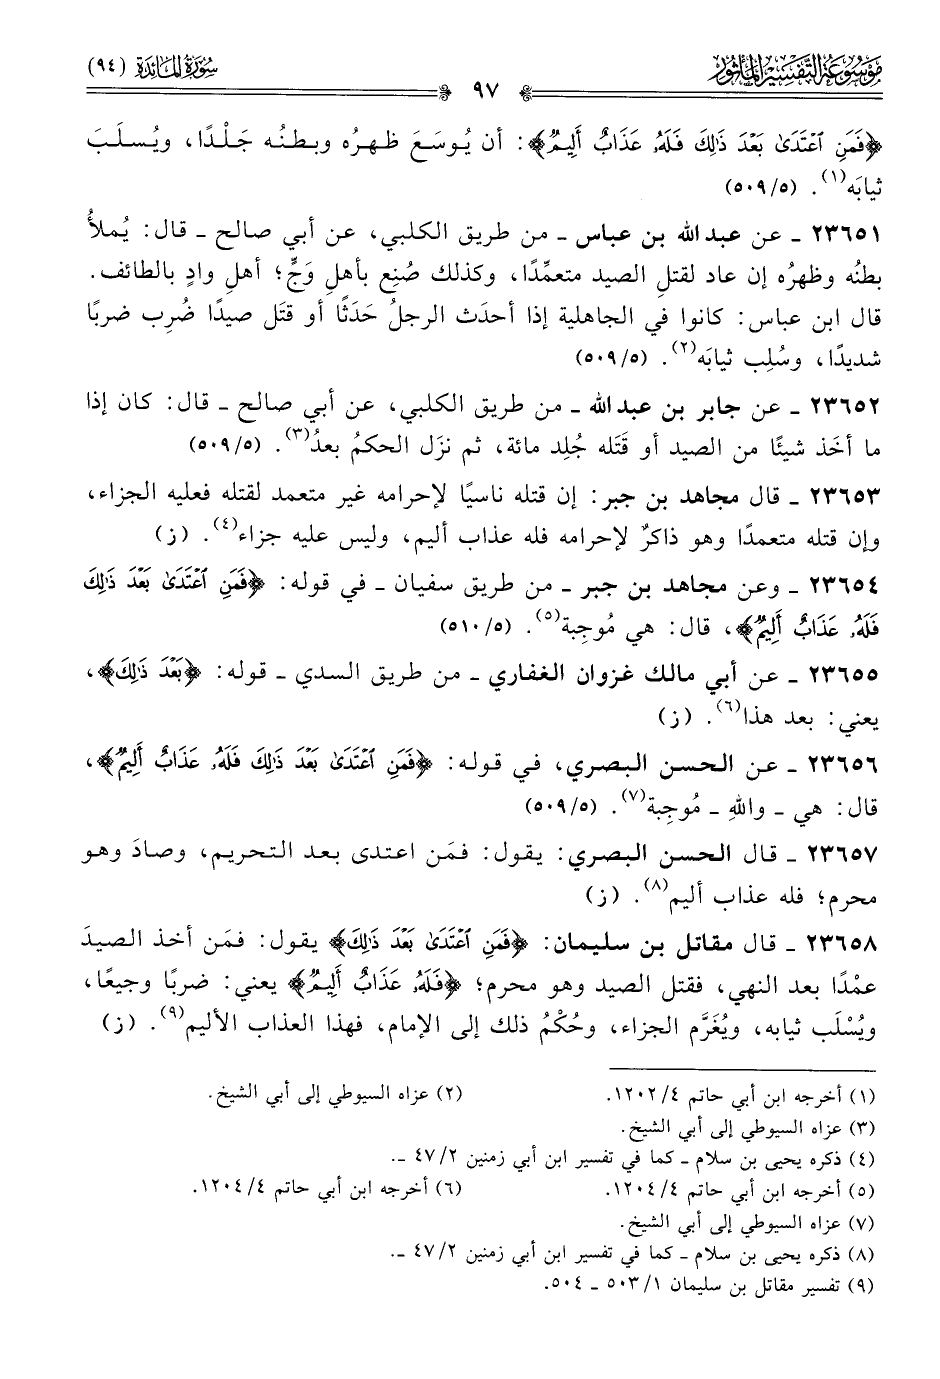 مَوْسُوعَة التَّفْسِير المأثور
٩٧
سُورَةُ المَائِدَة (٩٤)
﴿فَمَنِ ٱعْتَدَىٰ بَعْدَ ذَٰلِكَ فَلَهُۥ عَذَابٌ أَلِيمٌ﴾: أن يُوسَعَ ظهرُه وبطنُه جَلْدًا، ويُسلَبَ
ثيابَه(١). (٥/٥٠٩)
٢٣٦٥١ ـ عن عبد الله بن عباس ـ من طريق الكلبي، عن أبي صالح ـ قال: يُملأُ
بطنُه وظهرُه إن عاد لقتلِ الصيد متعمِّدًا، وكذلك صُنِع بأهلِ وَجٍّ؛ أهلِ وادٍ بالطائف.
قال ابن عباس: كانوا في الجاهلية إذا أحدَث الرجلُ حَدَثًا أو قتَل صيدًا ضُرِب ضربًا
شديدًا، وسُلِب ثيابَه(٢). (٥/٥٠٩)
٢٣٦٥٢ ـ عن جابر بن عبد الله ـ من طريق الكلبي، عن أبي صالح ـ قال: كان إذا
ما أخَذ شيئًا من الصيد أو قَتَله جُلِد مائة، ثم نزَل الحكمُ بعدُ(٣). (٥/٥٠٩)
٢٣٦٥٣ ـ قال مجاهد بن جبر: إن قتله ناسيًا لإحرامه غير متعمد لقتله فعليه الجزاء،
وإن قتله متعمدًا وهو ذاكرٌ لإحرامه فله عذاب أليم، وليس عليه جزاء(٤). (ز)
٢٣٦٥٤ ـ وعن مجاهد بن جبر ـ من طريق سفيان ـ في قوله: ﴿فَمَنِ ٱعْتَدَىٰ بَعْدَ ذَٰلِكَ
فَلَهُۥ عَذَابٌ أَلِيمٌ﴾، قال: هي مُوجِبة(٥). (٥/٥١٠)
٢٣٦٥٥ ـ عن أبي مالك غزوان الغفاري ـ من طريق السدي ـ قوله: ﴿بَعْدَ ذَٰلِكَ﴾،
يعني: بعد هذا(٦). (ز)
٢٣٦٥٦ ـ عن الحسن البصري، في قوله: ﴿فَمَنِ ٱعْتَدَىٰ بَعْدَ ذَٰلِكَ فَلَهُۥ عَذَابٌ أَلِيمٌ﴾،
قال: هي ـ واللهِ ـ مُوجِبة(٧). (٥/٥٠٩)
٢٣٦٥٧ ـ قال الحسن البصري: يقول: فمَن اعتدى بعد التحريم، وصادَ وهو
محرم؛ فله عذاب أليم(٨). (ز)
٢٣٦٥٨ ـ قال مقاتل بن سليمان: ﴿فَمَنِ ٱعْتَدَىٰ بَعْدَ ذَٰلِكَ﴾ يقول: فمَن أخذ الصيدَ
عمْدًا بعد النهي، فقتل الصيد وهو محرم؛ ﴿فَلَهُۥ عَذَابٌ أَلِيمٌ﴾ يعني: ضربًا وجيعًا،
ويُسْلَب ثيابه، ويُغَرَّم الجزاء، وحُكْمُ ذلك إلى الإمام، فهذا العذاب الأليم(٩). (ز)
(١) أخرجه ابن أبي حاتم ٤/١٢٠٢.
(٢) عزاه السيوطي إلى أبي الشيخ.
(٣) عزاه السيوطي إلى أبي الشيخ.
(٤) ذكره يحيى بن سلام ـ كما في تفسير ابن أبي زمنين ٢/٤٧ ـ.
(٥) أخرجه ابن أبي حاتم ٤/١٢٠٤.
(٦) أخرجه ابن أبي حاتم ٤/١٢٠٤.
(٧) عزاه السيوطي إلى أبي الشيخ.
(٨) ذكره يحيى بن سلام ـ كما في تفسير ابن أبي زمنين ٢/٤٧ ـ.
(٩) تفسير مقاتل بن سليمان ١/٥٠٣ ـ ٥٠٤.